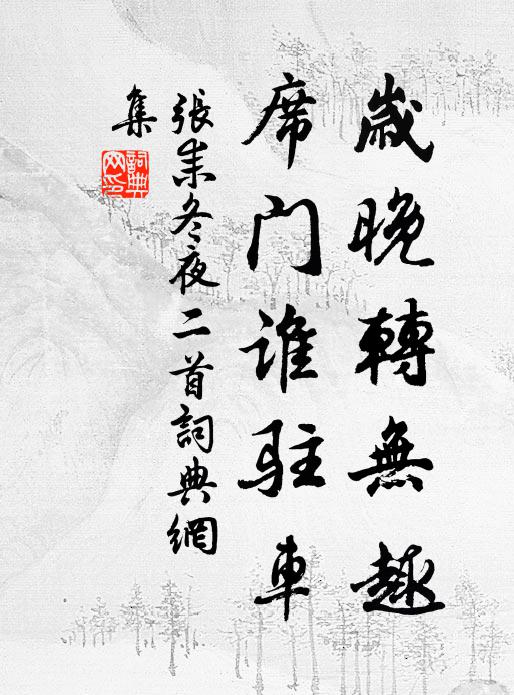 歲晚轉無趣
席门谁駐車
張耒冬夜二首詞典網
集
詞典網印